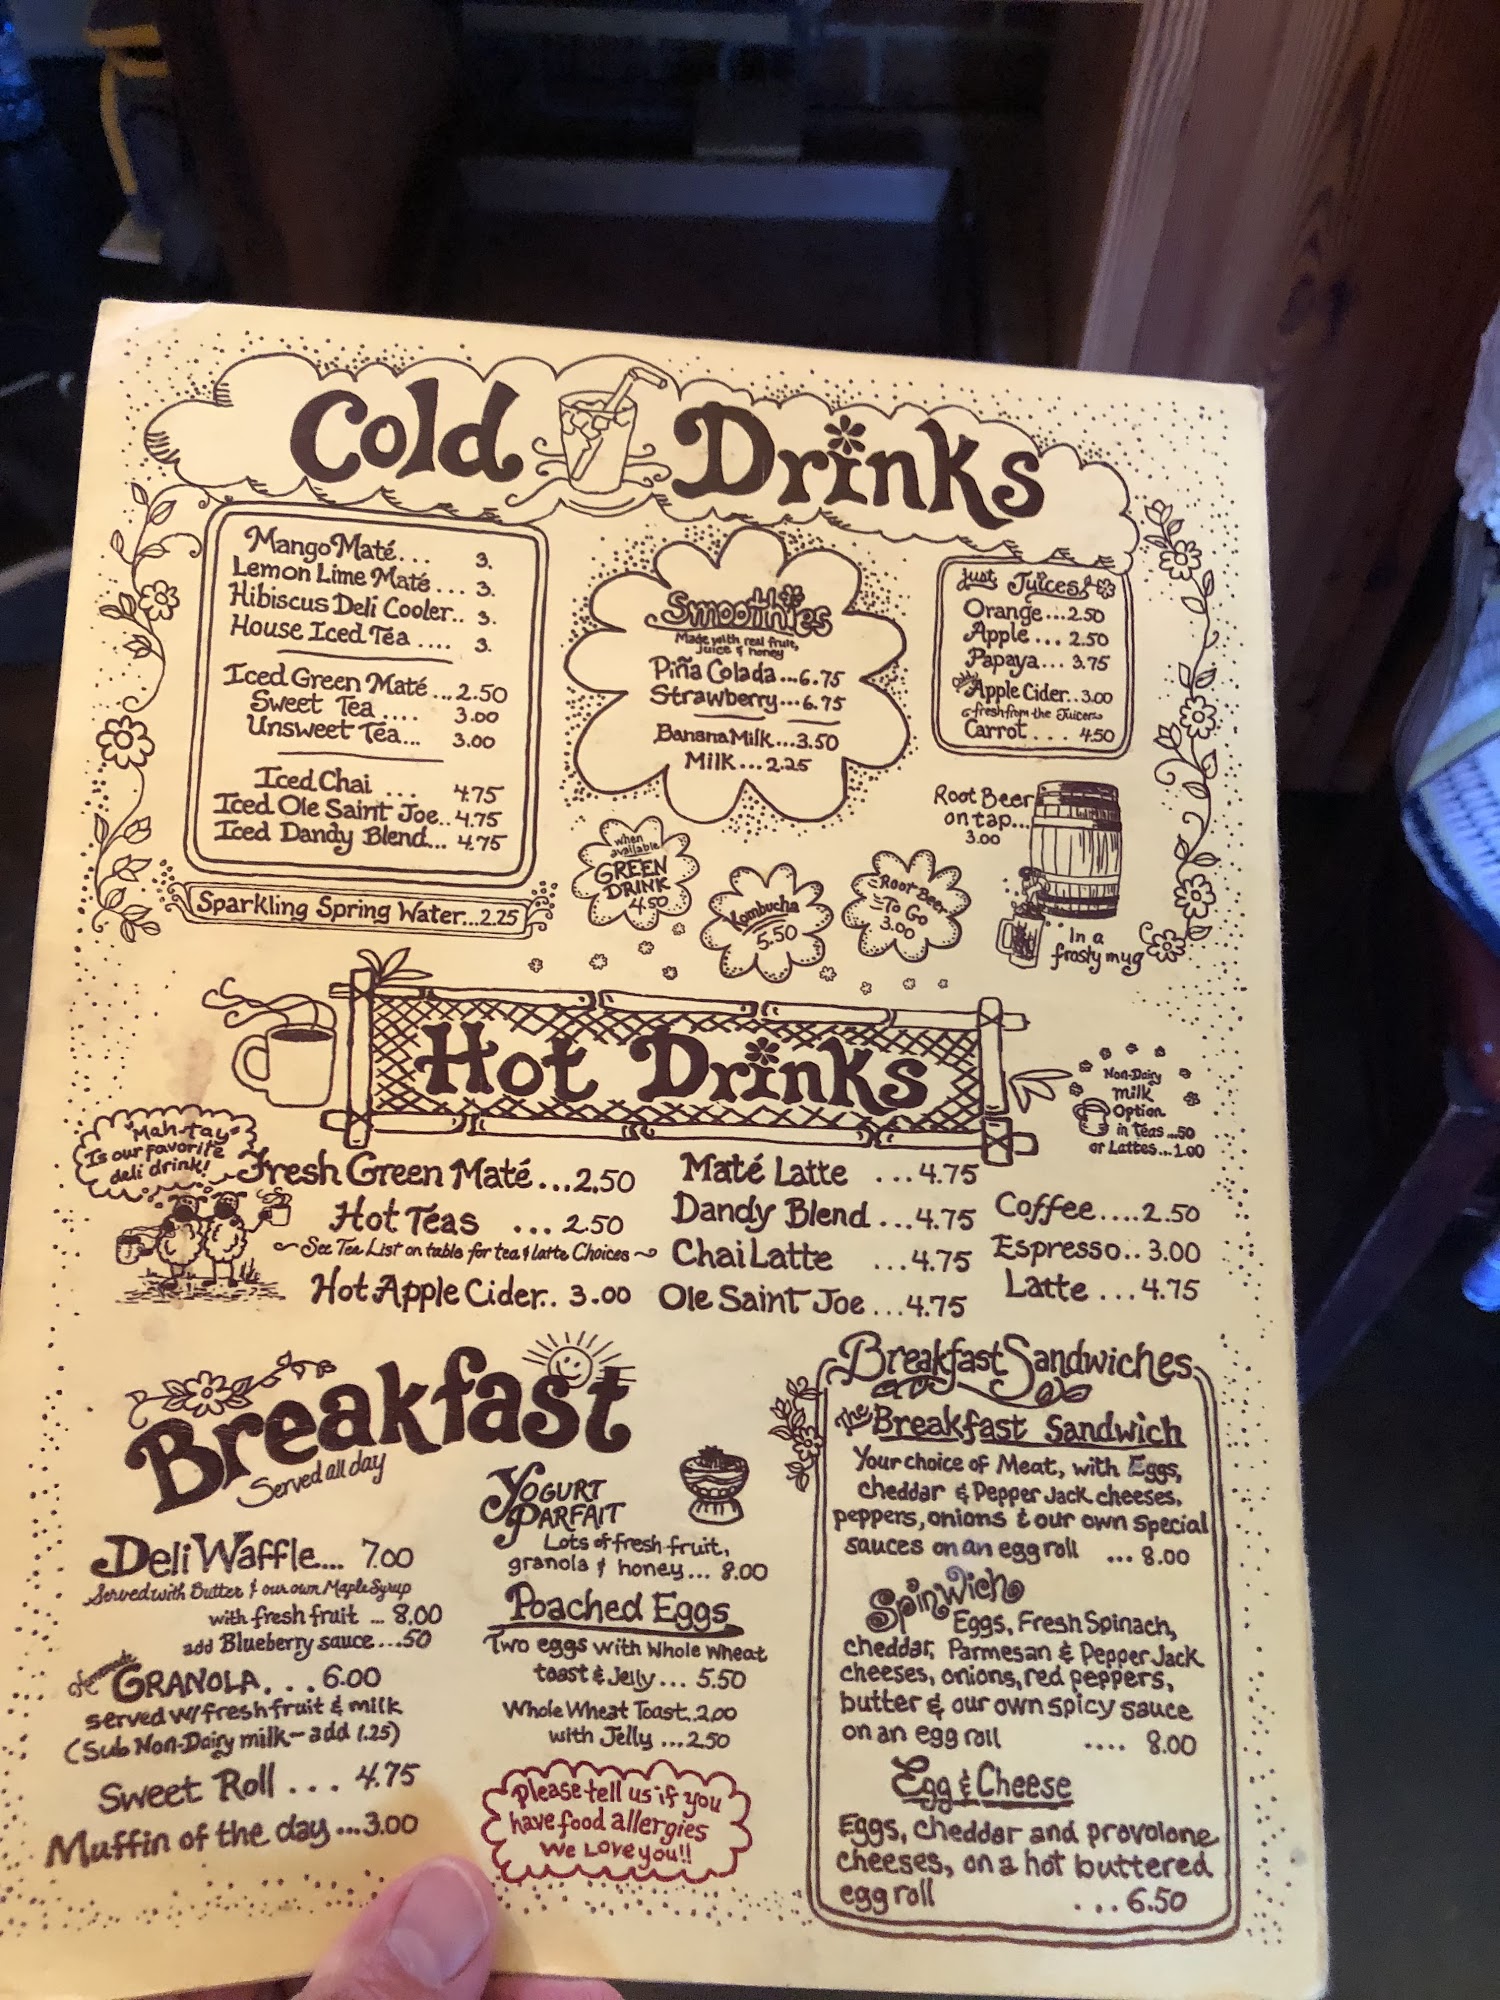 Cold Drinks
Mango Maté... 3.
Lemon Lime Maté... 3.
Hibiscus Deli Cooler.. 3.
House Iced Tea .... 3.
Iced Green Maté ...2.50
Sweet Tea.... 3.00
Unsweet Tea... 3.00
Iced Chai ... 4.75
Iced Ole Saint Joe.. 4.75
Iced Dandy Blend... 4.75
Sparkling Spring Water...2.25
Smoothies
Made with real fruit,
juice & honey
Piña Colada ...6.75
Strawberry...6.75
Banana Milk...3.50
Milk...2.25
Just Juices
Orange...2.50
Apple... 2.50
Papaya... 3.75
Apple Cider..3.00
fresh from the Juicer
Carrot ... 4.50
Root Beer
on tap...
3.00
In a
frosty mug
when
available
GREEN
DRINK
4.50
Kombucha
5.50
Root Beer
To Go
3.00
Hot Drinks
Non-Dairy
milk
Option
in Teas...50
or Lattes...1.00
"Mah-tay"
Is our favorite
deli drink!
Fresh Green Maté...2.50
Hot Teas ...2.50
See Tea List on table for tea & latte Choices
Hot Apple Cider.. 3.00
Maté Latte ...4.75
Dandy Blend ...4.75
Chai Latte ...4.75
Ole Saint Joe...4.75
Coffee....2.50
Espresso..3.00
Latte ...4.75
Breakfast
Served all day
Deli Waffle... 7.00
Served with Butter & our own Maple Syrup
with fresh fruit ... 8.00
add Blueberry sauce...50
Homemade
GRANOLA...6.00
served w/fresh fruit & milk
(Sub Non-Dairy milk-add 1.25)
Sweet Roll ... 4.75
Muffin of the day...3.00
YOGURT
PARFAIT
Lots of fresh fruit,
granola & honey... 8.00
Poached Eggs
Two eggs with Whole Wheat
toast & Jelly... 5.50
Whole Wheat Toast..2.00
with Jelly ...2.50
Please tell us if you
have food allergies
We Love you!!
Breakfast Sandwiches
The Breakfast Sandwich
Your choice of Meat, with Eggs,
cheddar & Pepper Jack cheeses,
peppers, onions & our own special
sauces on an egg roll ... 8.00
Spinwich
Eggs, Fresh Spinach,
cheddar, Parmesan & Pepper Jack
cheeses, onions, red peppers,
butter & our own spicy sauce
on an egg roll .... 8.00
Egg & Cheese
Eggs, cheddar and provolone
cheeses, on a hot buttered
egg roll ...6.50